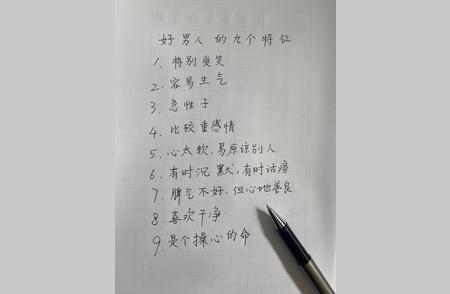 好男人的九个特征
1. 特别爱笑
2. 容易生气
3. 急性子
4. 比较重感情
5. 心太软,易原谅别人
6. 有时沉默,有时话痨
7. 脾气不好,但心地善良
8. 喜欢干净
9. 是个操心的命